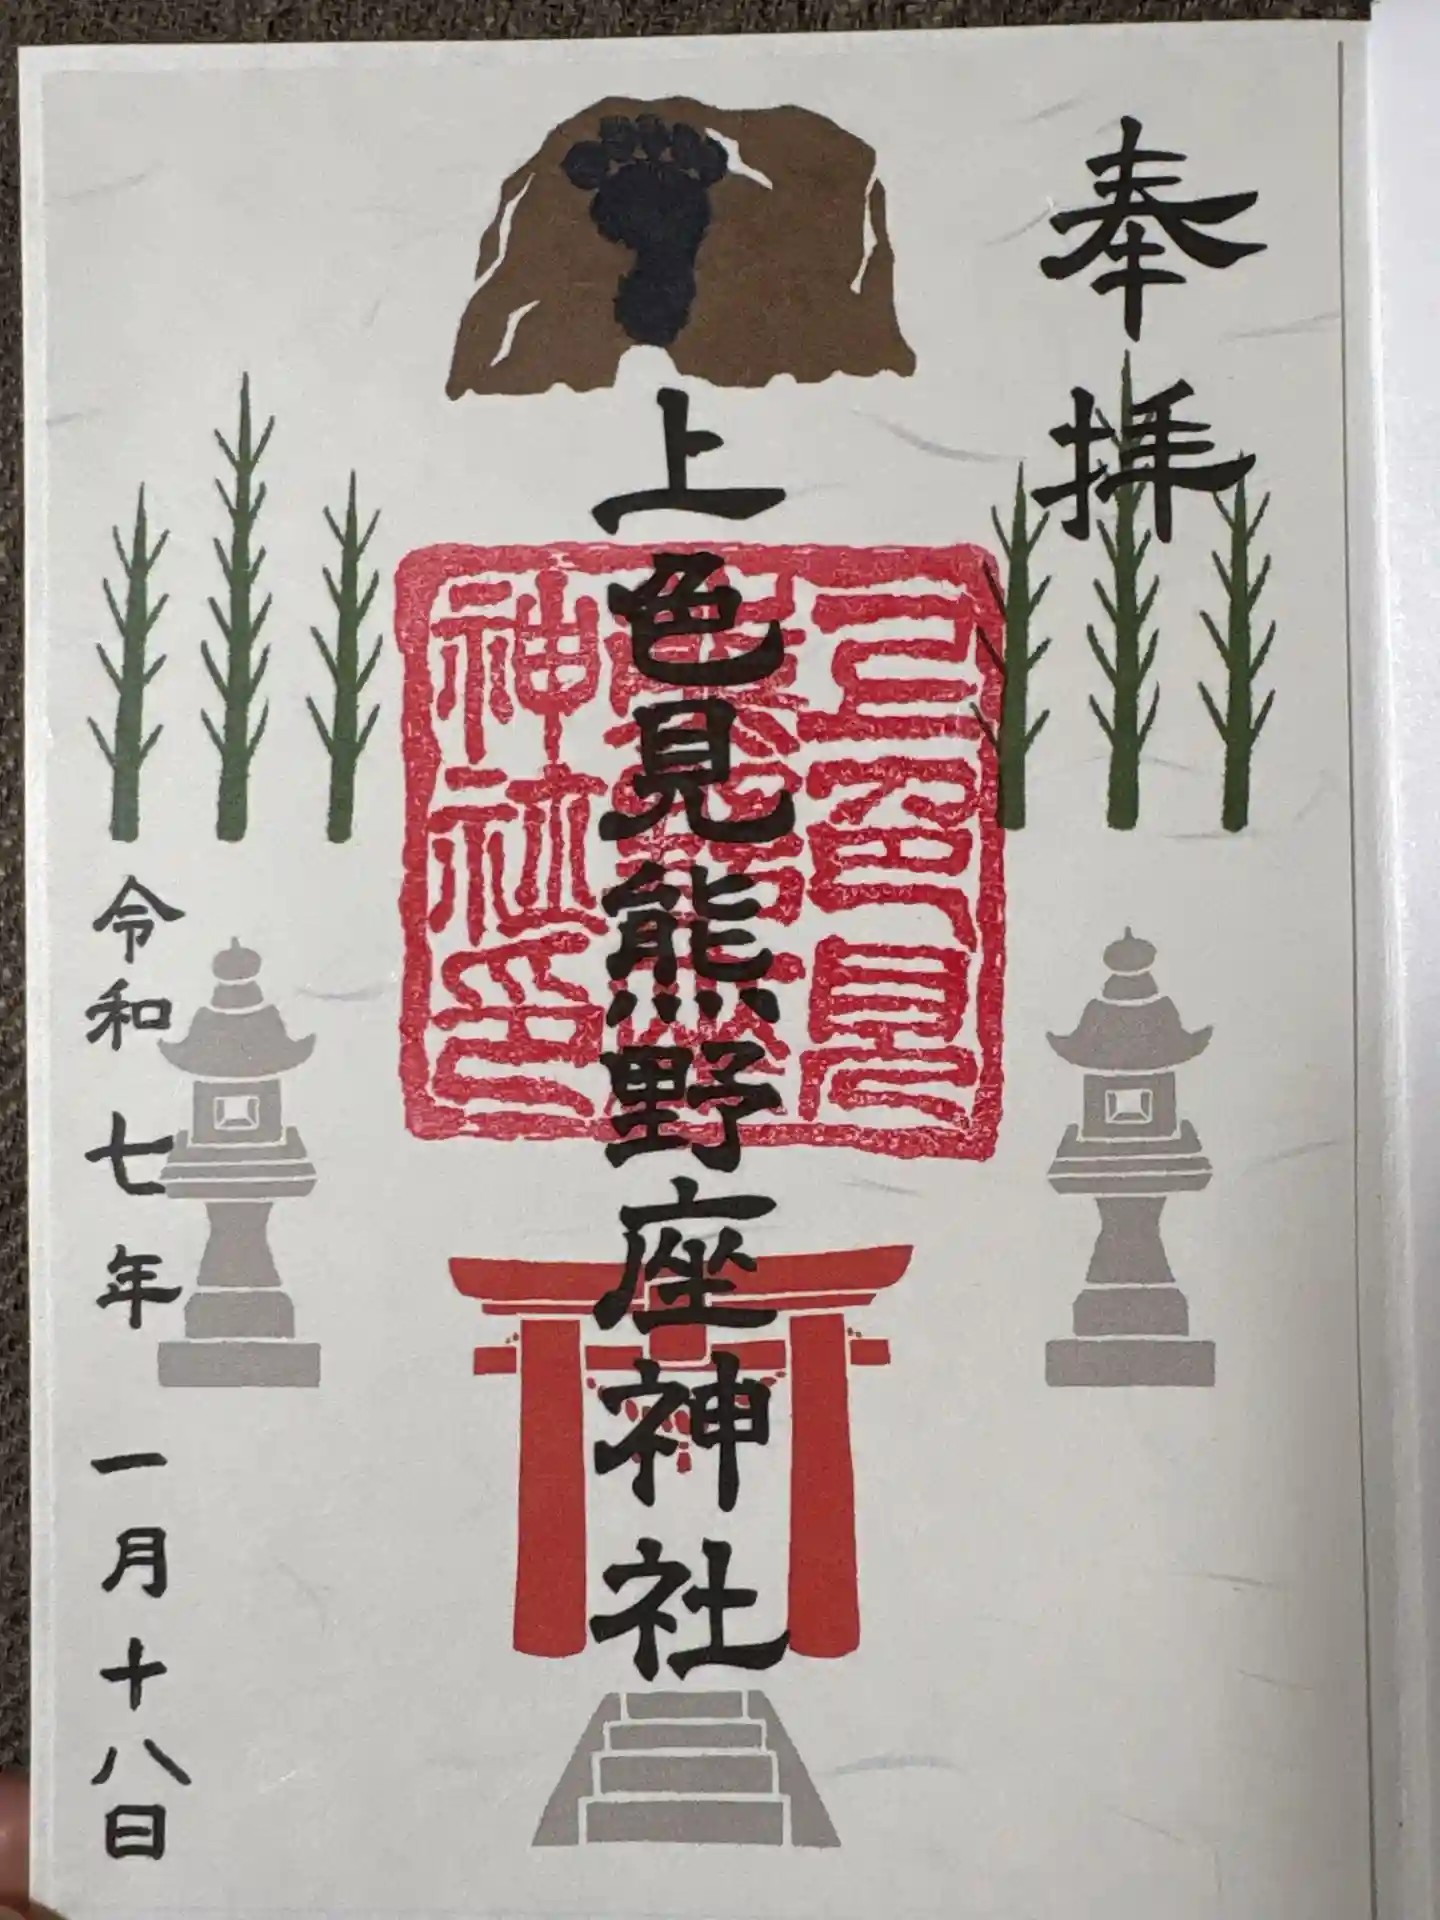 奉拝
上色見熊野座神社
上色見
神社印
令和七年一月十八日